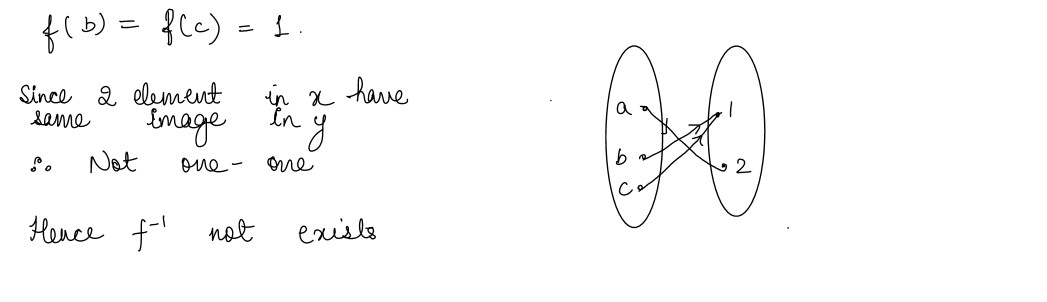 f(b) = f(c) = 1.
Since 2 element in x have
same image in y
∴ Not one-one
Hence f⁻¹ not exists
a
b
c
1
2